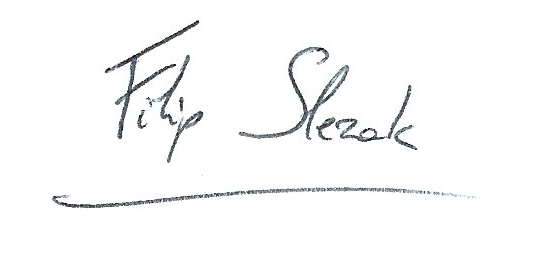 Filip Slezak